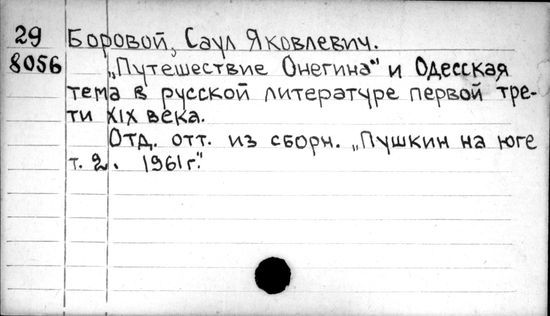 29 Боровой, Саул Яковлевич.
8056 „Путешествие Онегина" и Одесская
тема в русской литературе первой тре-
ти XIX века.
Отд. отт. из сборн. „Пушкин на юге
т. 2. 1961 г."